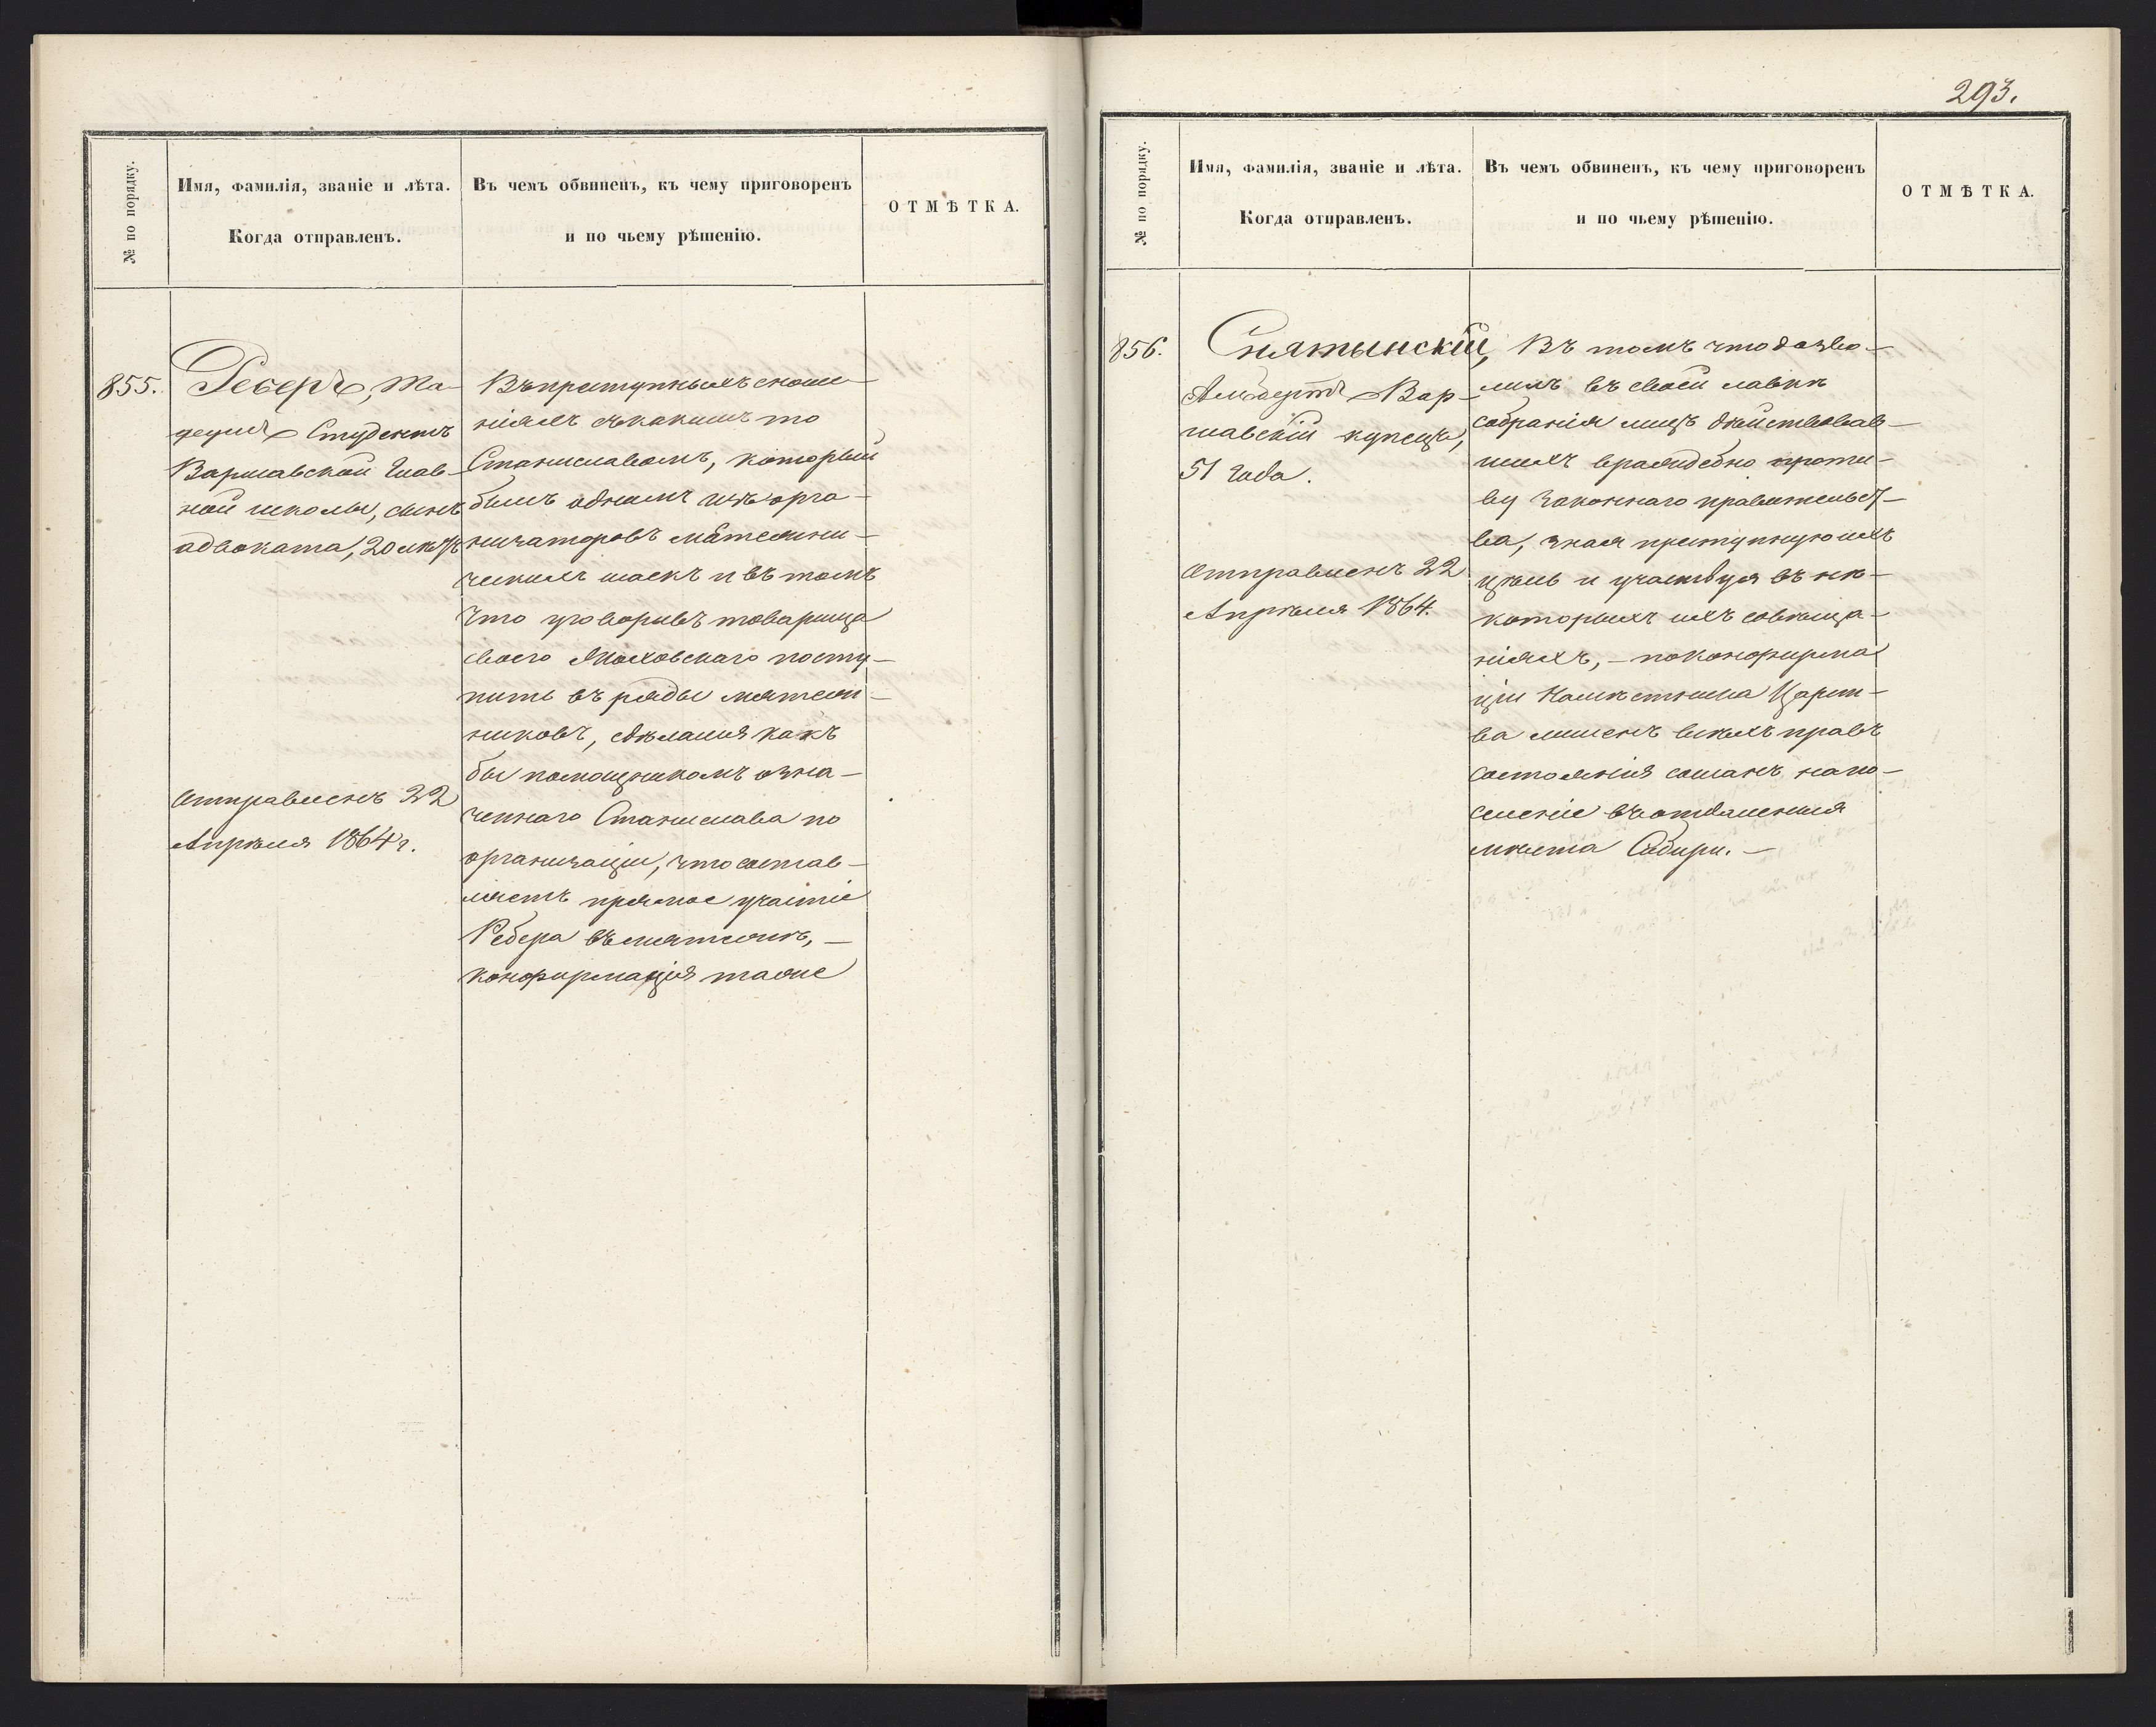 293.
№ по порядку.
Имя, фамилія, званіе и лѣта.
Когда отправленъ.
Въ чемъ обвиненъ, къ чему приговоренъ
и по чьему рѣшенію.
ОТМѢТКА.
855.
Реберъ, Та-
деушъ Студентъ
Варшавской Глав-
ной школы, сынъ
адвоката, 20 лѣтъ
Отправленъ 22
Апрѣля 1864 г.
Въ преступныхъ сноше-
ніяхъ съ какимъ то
Станиславомъ, который
былъ однимъ изъ орга-
низаторовъ мятежни-
ческихъ шаекъ и въ томъ
что уговоривъ товарища
своего Яхловскаго посту-
пить въ ряды мятеж-
никовъ, сдѣлался какъ
бы помощникомъ озна-
ченнаго Станислава по
организаціи, что состав-
ляетъ прямое участіе
Ребера въ мятежѣ, —
конфирмація таже
№ по порядку.
Имя, фамилія, званіе и лѣта.
Когда отправленъ.
Въ чемъ обвиненъ, къ чему приговоренъ
и по чьему рѣшенію.
ОТМѢТКА.
856.
Снятынскій,
Альбертъ Вар-
шавскій купецъ,
51 года.
Отправленъ 22
Апрѣля 1864.
Въ томъ что дозво-
лилъ въ своей лавкѣ
собранія лицъ дѣйствовав-
шихъ враждебно проти-
ву законнаго правительст-
ва, зная преступную ихъ
цѣль и участвуя въ нѣ-
которыхъ ихъ совѣща-
ніяхъ, — по конфирма
ціи Намѣстника Царст-
ва лишенъ всѣхъ правъ
состоянія сосланъ на по-
селеніе въ отдаленныя
мѣста Сибири. —